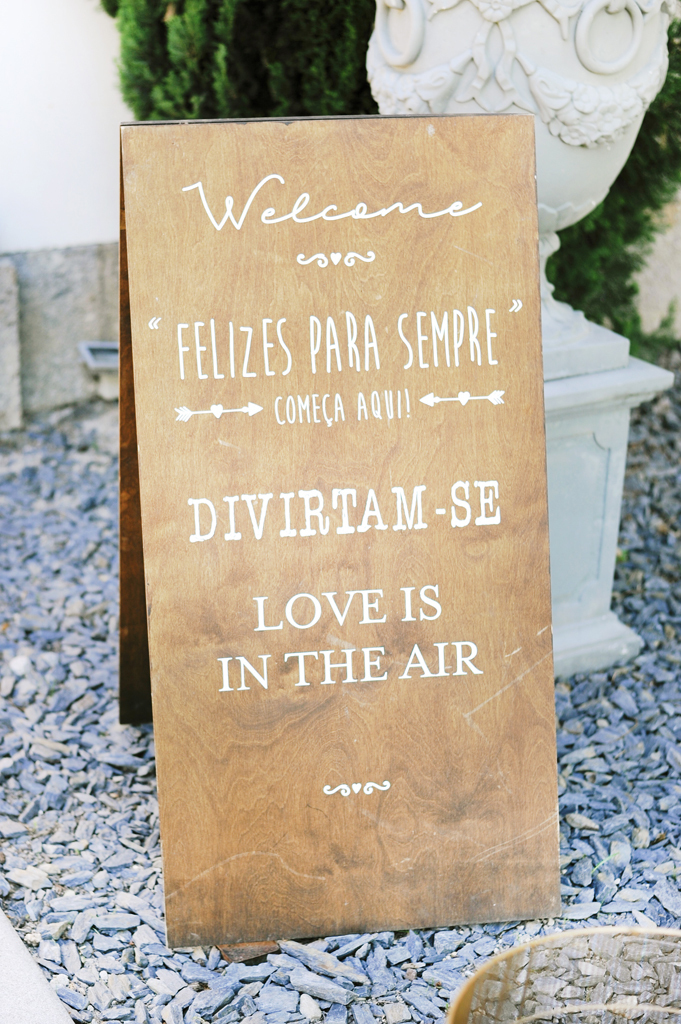 Welcome
“ FELIZES PARA SEMPRE ”
COMEÇA AQUI!
DIVIRTAM-SE
LOVE IS
IN THE AIR